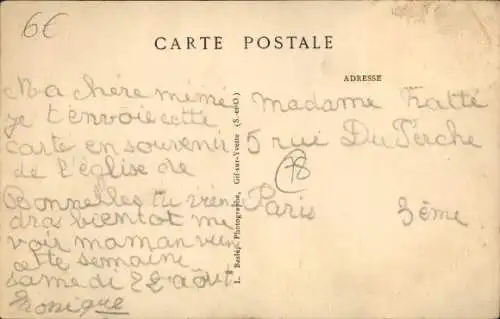 6€
CARTE POSTALE
ADRESSE
Ma chère mémé
je t'envoie cette
carte en souvenir
de l'église de
Bonnelles tu vien
dras bientot me
voir maman vien
cette semaine
samedi 22 août
Monique
L. Basle, Photographe, Gif-sur-Yvette (S.-et-O.)
Madame Fratté
5 rue Du Perche
78
Paris 3ème